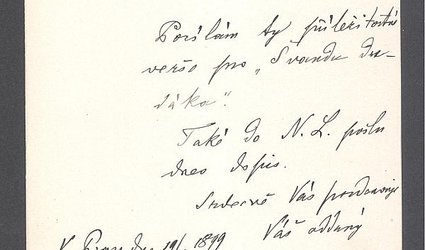 Posílám ty příležitostné
verše pro „Švandu du-
dáka“.
Také do N. L. pošlu
dnes dopis.
Srdečně Vás pozdravuje
Váš oddaný
V Praze dne 19/1. 1899